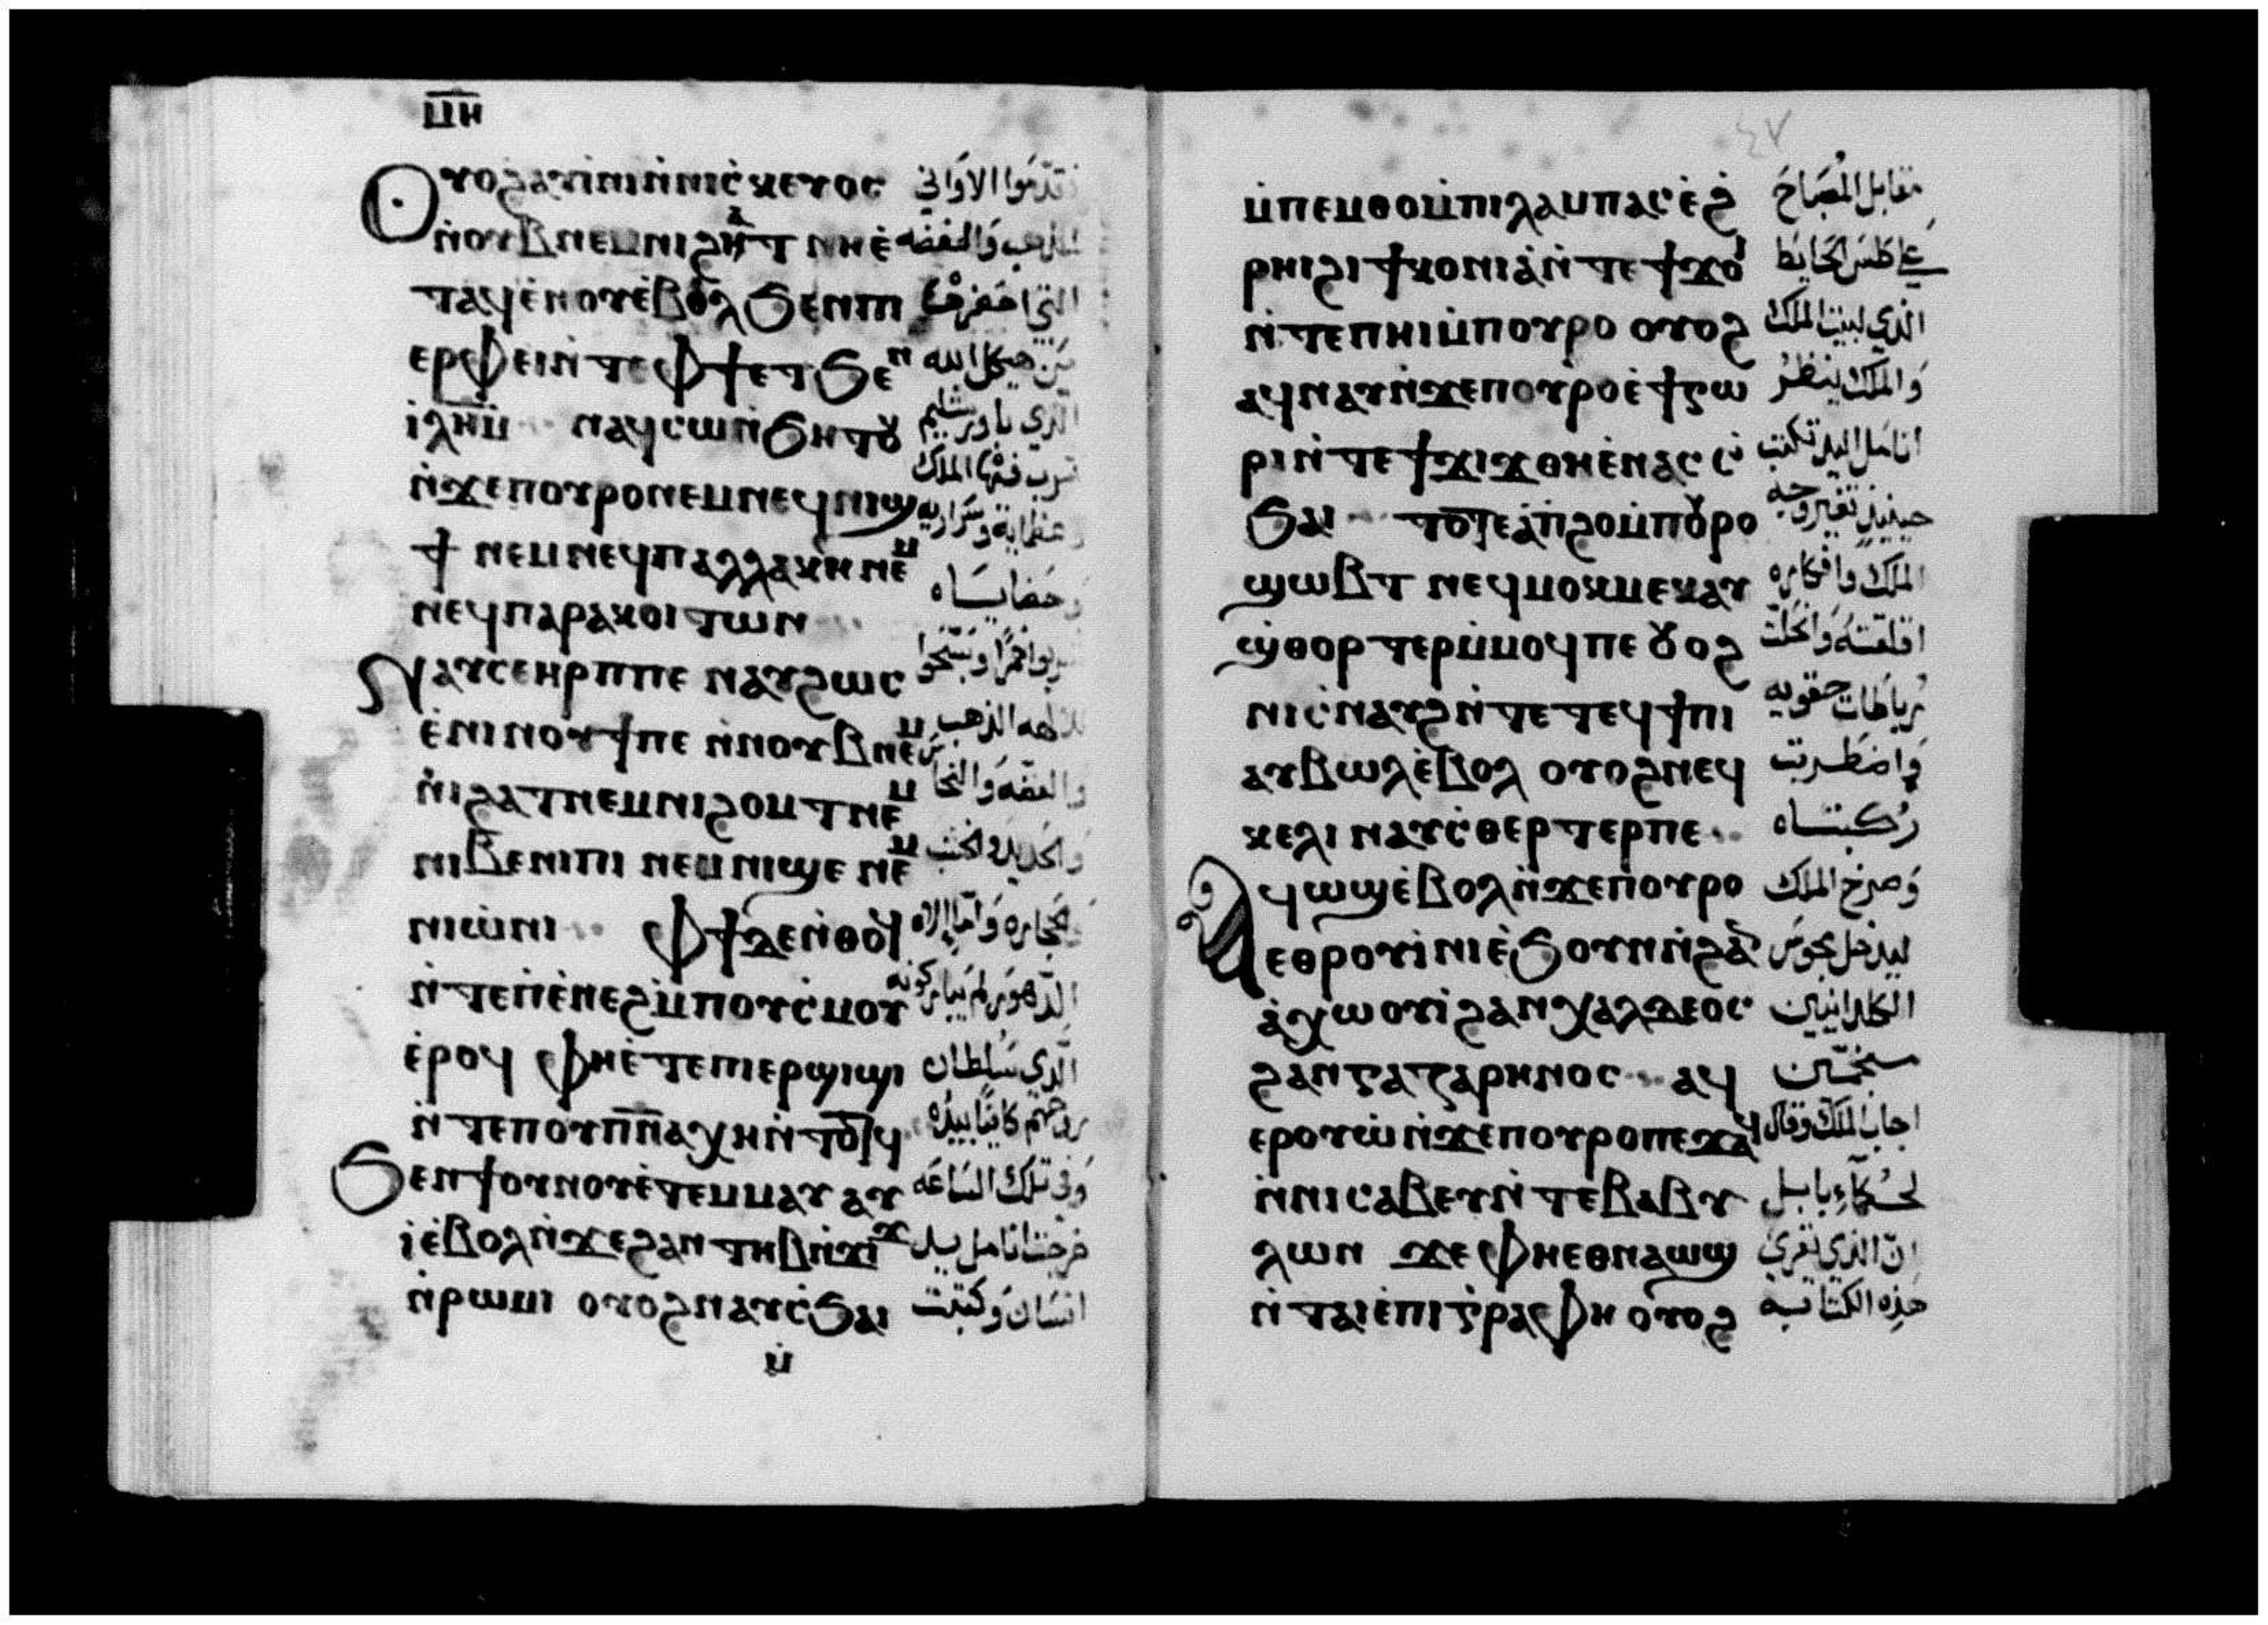 ⲙⲏ
ⲟⲩⲟϩⲁⲩⲓⲛⲓⲛ̀ⲛⲓⲥ̀ⲕⲉⲩⲟⲥ تقدموا الاواني
ⲛ̀ⲛⲟⲩⲃⲛⲉⲙⲛⲓϩⲁⲧ ⲛⲏⲉ̀ الذهب والفضه
ⲧⲁϥⲉ̀ⲛⲟⲩⲉ̀ⲃⲟⲗϧⲉⲛⲡⲓ التي
ⲉⲣⲫⲉⲓⲛ̀ⲧⲉⲫϯⲉⲧϧⲉⲛ من هيكل الله
ⲓ̀ⲗⲏⲙ̅ ⲛⲁϥⲥⲱⲛ̀ϧⲏⲧⲟⲩ الذي باورشليم
ⲛ̀ϫⲉⲡⲟⲩⲣⲟⲛⲉⲙⲛⲉϥⲛⲓϣ شرب فيها الملك
ϯ ⲛⲉⲙⲛⲉϥⲡⲁⲗⲗⲁⲕⲏ ⲛⲉⲙ
ⲛⲉϥⲡⲁⲣⲁⲕⲟⲓⲧⲱⲛ
ⲛⲁⲩⲥⲉⲏⲣⲡⲡⲉ ⲛⲁⲩϩⲱⲥ
ⲉ̀ⲛⲓⲛⲟⲩϯⲡⲉ ⲛ̀ⲛⲟⲩⲃⲛⲉⲙ الذهب
ⲛ̀ⲛⲓϩⲁⲧⲛⲉⲙⲛⲓϩⲟⲙⲧⲛⲉⲙ والفضه والنحاس
ⲛⲓⲃⲉⲛⲓⲡⲓ ⲛⲉⲙⲛⲓϣⲉ ⲛⲉⲙ والحديد والخشب
ⲛⲓⲱ̀ⲛⲓ ⲫϯⲇⲉⲛ̀ⲑⲟϥ والحجاره واما الاه
ⲛ̀ⲧⲉⲡⲓⲉ̀ⲛⲉϩⲙ̀ⲡⲟⲩⲥ̀ⲙⲟⲩ الدهور لم يباركونه
ⲉ̀ⲣⲟϥ ⲫⲏⲉ̀ⲧⲉⲡⲓⲉⲣϣⲓϣⲓ الذي سلطان
ⲛ̀ⲧⲉⲡⲟⲩⲡ̅ⲛ̅ⲁⲭⲏⲛ̀ⲧⲟⲧϥ روحهم كاينا بيده
ϧⲉⲛϯⲟⲩⲛⲟⲩⲉ̀ⲧⲉⲙⲙⲁⲩ ⲁⲩ وفي تلك الساعه
ⲓ̀ⲉ̀ⲃⲟⲗⲛ̀ϫⲉϩⲁⲛⲧⲏⲃⲛ̀ϫⲓϫ خرجت انامل يد
ⲛ̀ⲣⲱⲙⲓ ⲟⲩⲟϩⲛⲁⲩⲥ̀ϧⲁⲓ انسان وكتبت
ⲙ̀
٤٧
ⲙ̀ⲡⲉⲙⲑⲟⲙ̀ⲡⲓⲗⲁⲙⲡⲁⲥⲉ̀ϩ̀ مقابل المصباح
ⲣⲏⲓϩⲓϯⲕⲟⲛⲓⲁ̀ⲛ̀ⲧⲉϯϫⲟⲓ الحايط
ⲛ̀ⲧⲉⲡⲏⲓⲙ̀ⲡⲟⲩⲣⲟ ⲟⲩⲟϩ الذي لبيت الملك
ⲁϥⲛⲁⲩⲛ̀ϫⲉⲡⲟⲩⲣⲟⲉ̀ϯⲍⲱ والملك ينظر
ⲣⲓⲛ̀ⲧⲉϯϫⲓϫⲑⲏⲉ̀ⲛⲁⲥⲥ̀ انامل اليد تكتب
ϧⲁⲓ ⲧⲟⲧⲉⲁ̀ⲡϩⲟⲙ̀ⲡⲟⲩⲣⲟ حينيذ تغير وجه
ϣⲱⲃⲧ ⲛⲉϥⲙⲟⲕⲙⲉⲕⲁⲩ الملك وافكاره
ϣ̀ⲑⲟⲣⲧⲉⲣⲙ̀ⲙⲟϥⲡⲉ ⲟⲩⲟϩ اقلقته وانحلت
ⲛⲓⲥ̀ⲛⲁⲩϩⲛ̀ⲧⲉⲧⲉϥϯⲡⲓ رباطات حقويه
ⲁⲩⲃⲱⲗⲉ̀ⲃⲟⲗ ⲟⲩⲟϩⲛⲉϥ واضطربت
ⲕⲉⲗⲓ ⲛⲁⲩⲥ̀ⲑⲉⲣⲧⲉⲣⲡⲉ ركبتاه
ⲁϥⲱϣⲉ̀ⲃⲟⲗⲛ̀ϫⲉⲡⲟⲩⲣⲟ وصرخ الملك
ⲉⲑⲣⲟⲩⲓ̀ⲛⲓⲉ̀ϧⲟⲩⲛⲛ̀ϩⲁⲛ ليدخل مجوس
ⲁ̀ⲭⲱⲟⲩⲓ̀ϩⲁⲛⲭⲁⲗⲇⲉⲟⲥ الكلدانيين
ϩⲁⲛⲅⲁⲍⲁⲣⲏⲛⲟⲥ ⲁϥ منجمين
ⲉⲣⲟⲩⲱ̀ⲛ̀ϫⲉⲡⲟⲩⲣⲟⲡⲉϫⲁϥ اجاب الملك وقال
ⲛ̀ⲛⲓⲥⲁⲃⲉⲩⲛ̀ⲧⲉⲃⲁⲃⲩ لحكماء بابل
ⲗⲱⲛ ϫⲉⲫⲏⲉⲑⲛⲁϣϣ ان الذي يقري
ⲛ̀ⲧⲁⲓⲉ̀ⲡⲓⲅ̀ⲣⲁⲫⲏ ⲟⲩⲟϩ هذه الكتابه